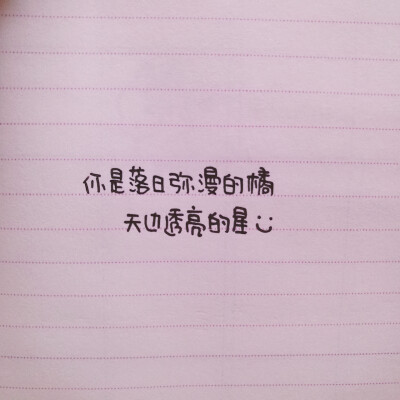 你是落日弥漫的橘
天边透亮的星